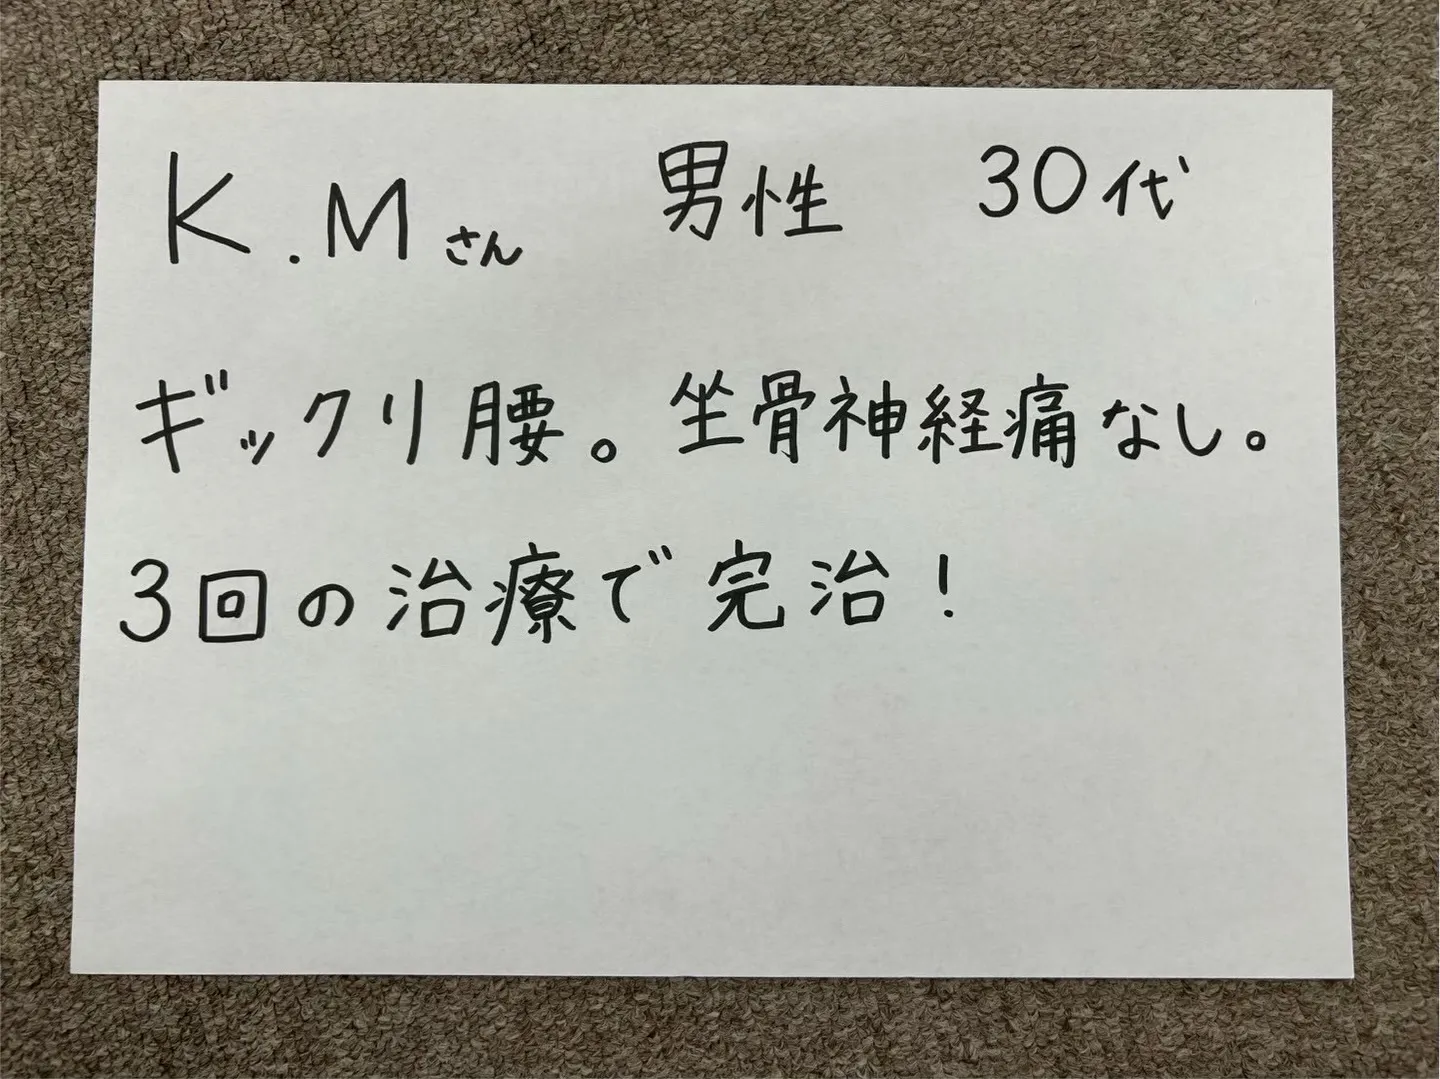 K.Mさん 男性 30代
ギックリ腰。坐骨神経痛なし。
3回の治療で完治!